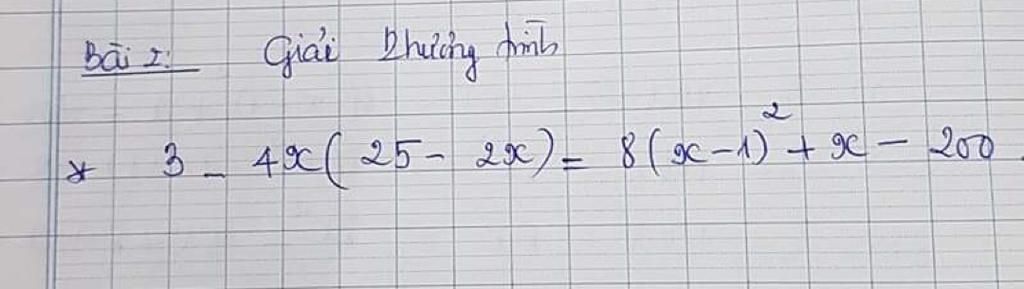 Bài 2: Giải Phương trình
* 3 - 4x(25 - 2x) = 8(x-1)² + x - 200